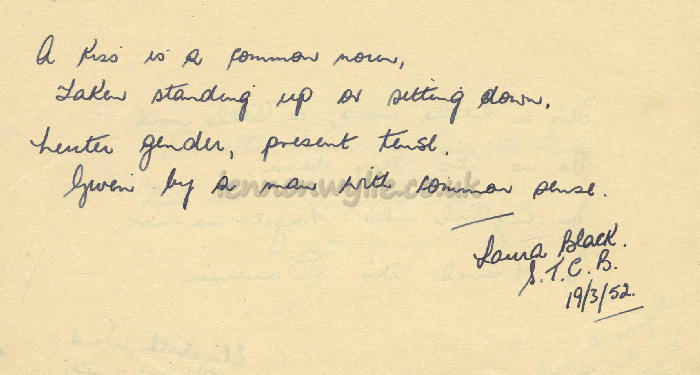 A kiss is a common noun,
Taken standing up or sitting down,
Neuter gender, present tense.
Given by a man with common sense.
lennonwylie.co.uk
Laura Black.
S.T.C.B.
19/3/52.